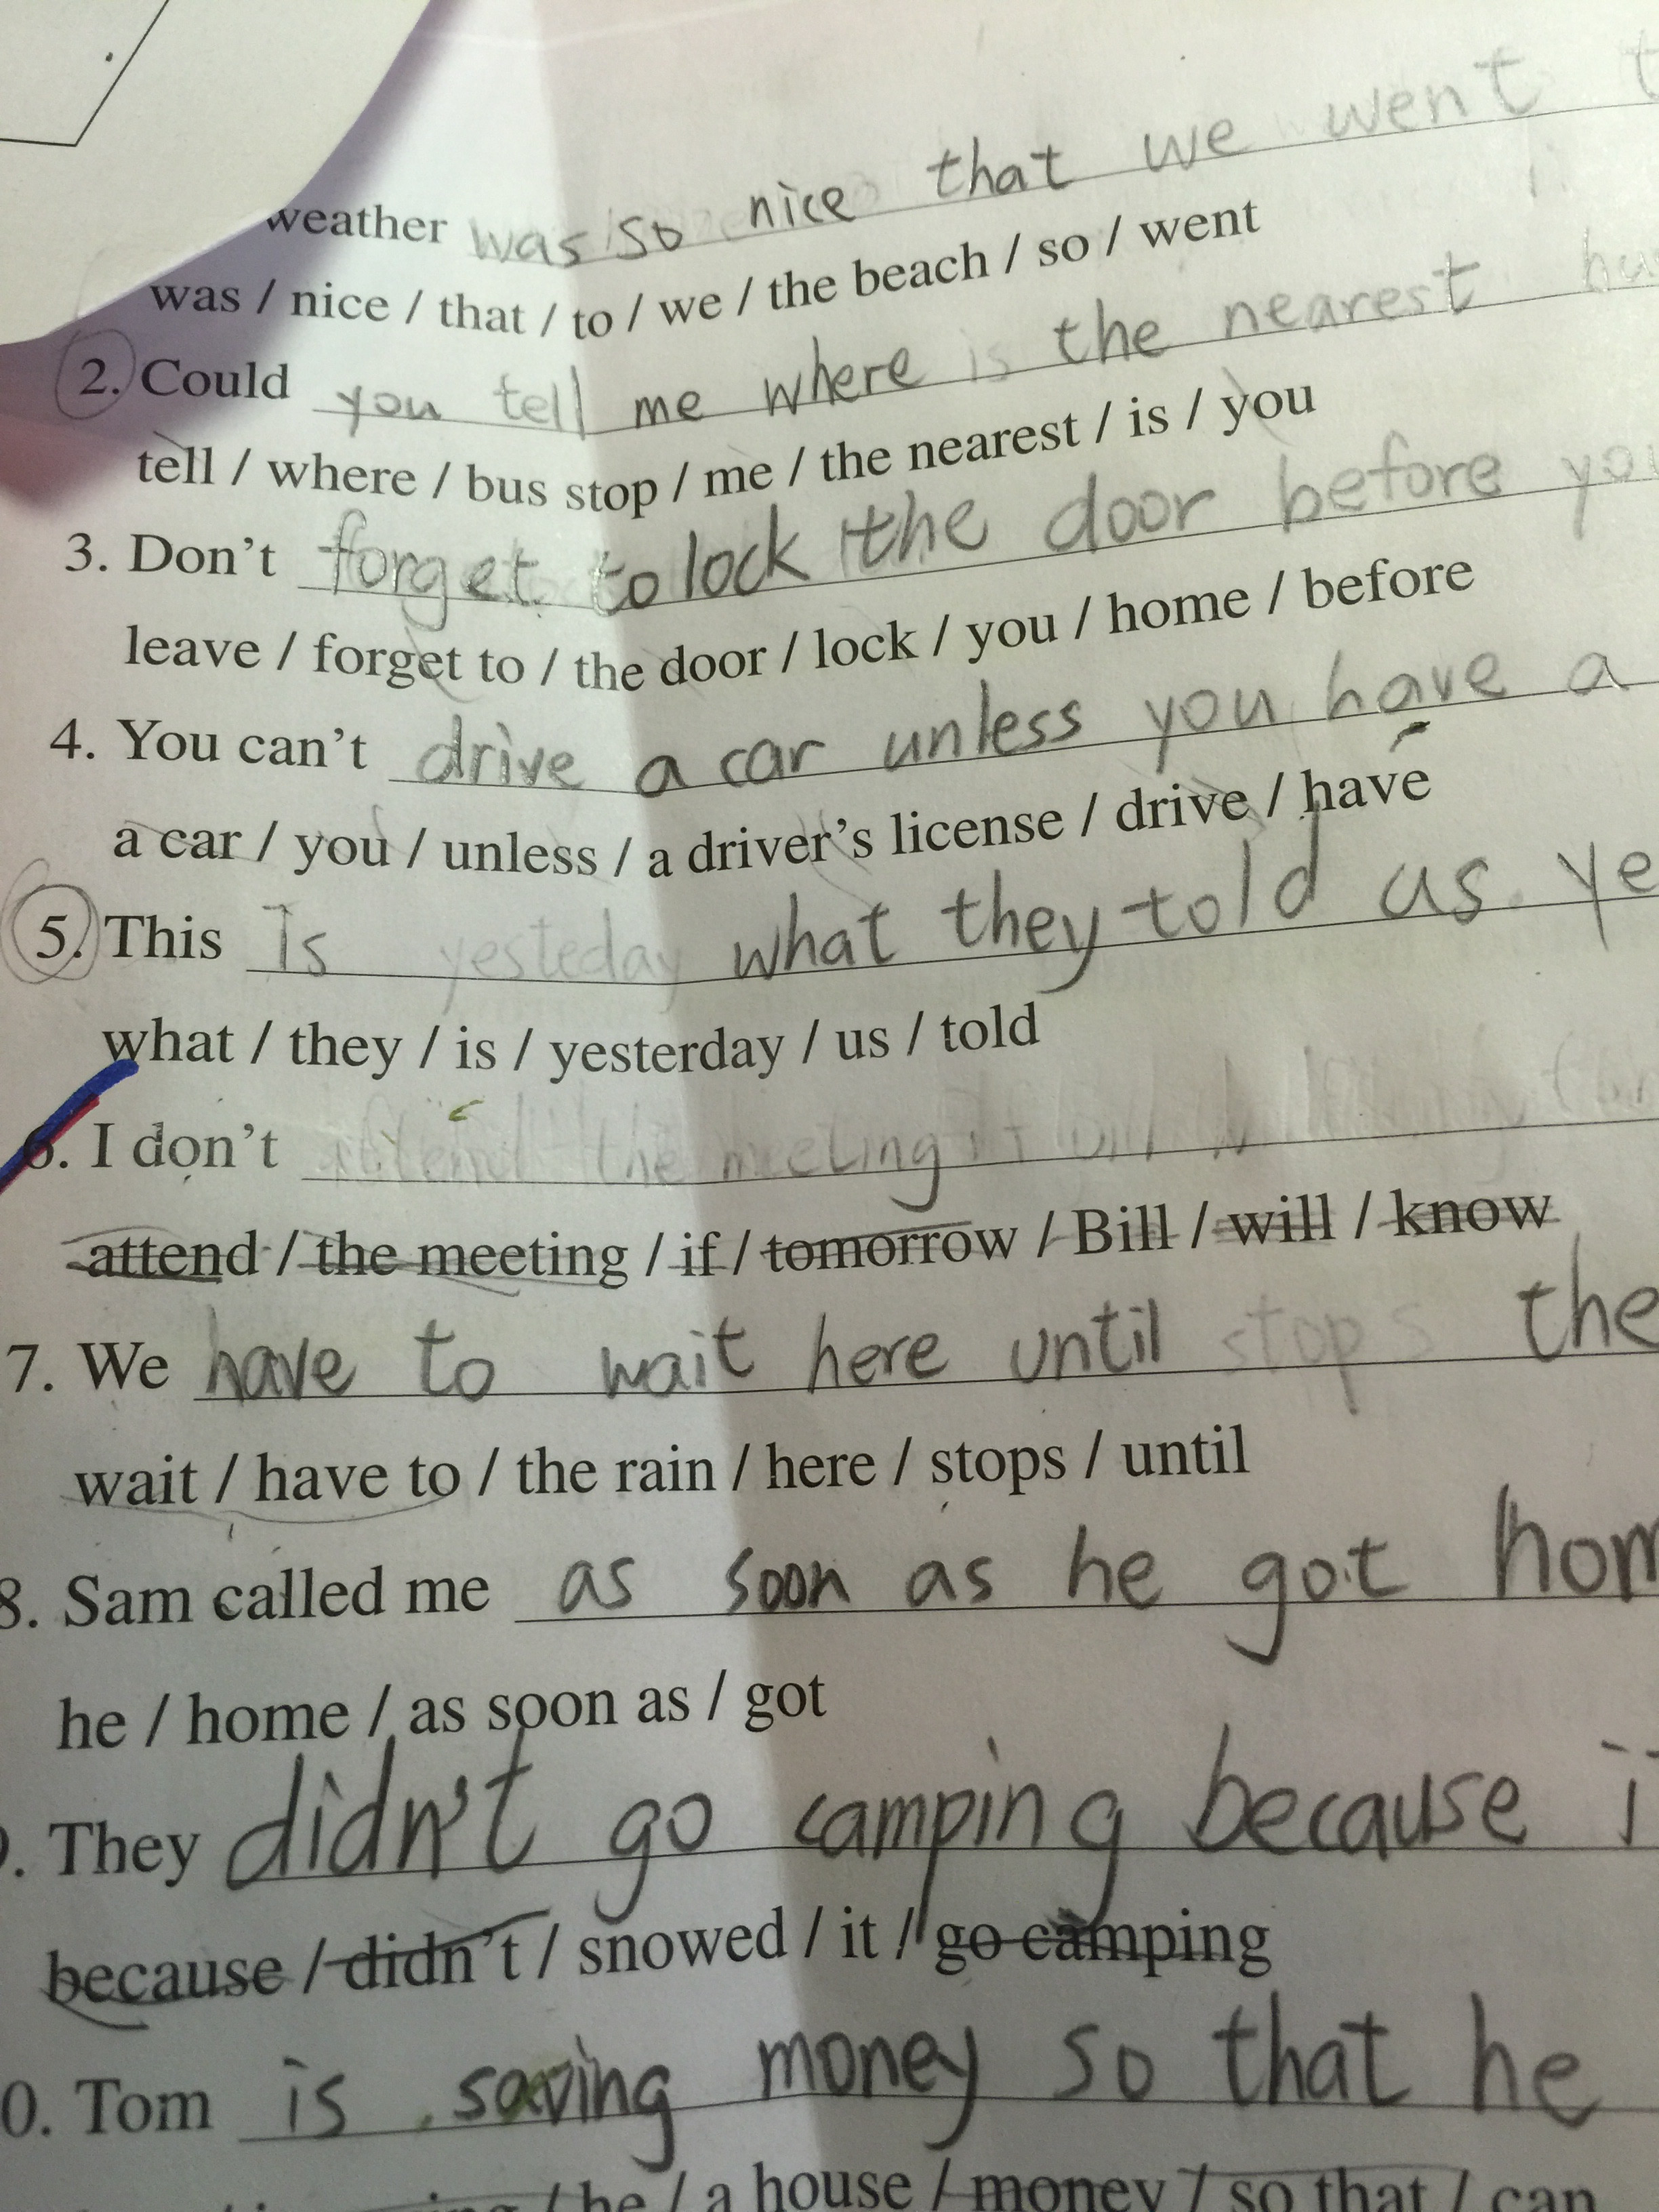 weather was so nice that we went t
was / nice / that / to / we / the beach / so / went
2. Could you tell me where is the nearest
tell / where / bus stop / me / the nearest / is / you
3. Don't forget to lock the door before you
leave / forget to / the door / lock / you / home / before
4. You can't drive a car unless you have a
a car / you / unless / a driver's license / drive / have
5. This is yesteday what they told us ye
what / they / is / yesterday / us / told
6. I don't attend the meeting if
attend / the meeting / if / tomorrow / Bill / will / know
7. We have to wait here until stops the
wait / have to / the rain / here / stops / until
8. Sam called me as soon as he got hom
he / home / as soon as / got
. They didn't go camping because i
because / didn't / snowed / it / go camping
0. Tom is saving money so that he
he / a house / money / so that / can